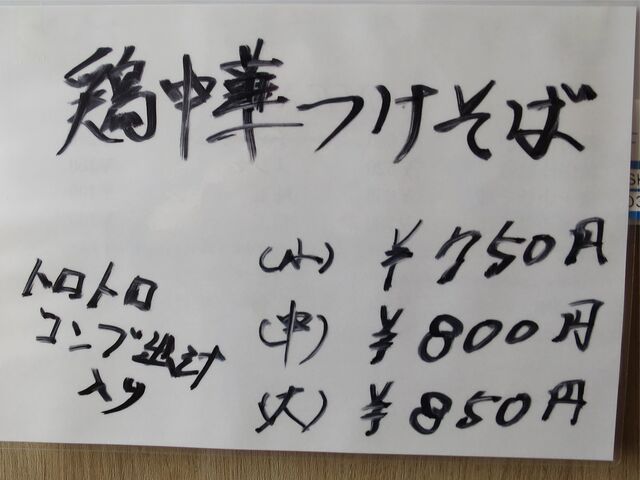 鶏中華つけそば
(小) ¥750円
(中) ¥800円
(大) ¥850円
トロトロ
コンブ
入り